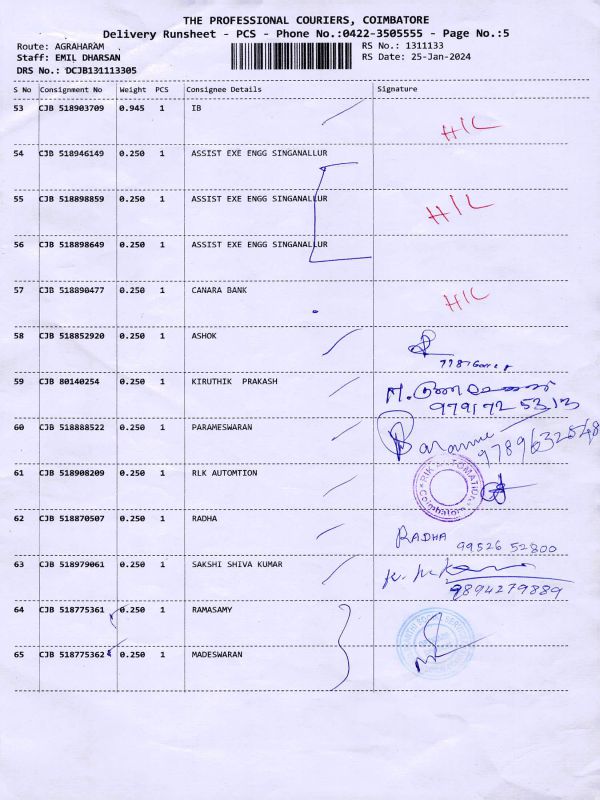 THE PROFESSIONAL COURIERS, COIMBATORE
Delivery Runsheet - PCS - Phone No.:0422-3505555 - Page No.:5
Route: AGRAHARAM RS No.: 1311133
Staff: EMIL DHARSAN RS Date: 25-Jan-2024
DRS No.: DCJB131113305
S No Consignment No Weight PCS Consignee Details Signature
53 CJB 518903709 0.945 1 IB H/L
54 CJB 518946149 0.250 1 ASSIST EXE ENGG SINGANALLUR
55 CJB 518898859 0.250 1 ASSIST EXE ENGG SINGANALLUR H/L
56 CJB 518898649 0.250 1 ASSIST EXE ENGG SINGANALLUR
57 CJB 518890477 0.250 1 CANARA BANK H/L
58 CJB 518852920 0.250 1 ASHOK
59 CJB 80140254 0.250 1 KIRUTHIK PRAKASH
97917 25313
60 CJB 518888522 0.250 1 PARAMESWARAN
61 CJB 518908209 0.250 1 RLK AUTOMTION Coimbatore
62 CJB 518870507 0.250 1 RADHA RADHA
99526 52800
63 CJB 518979061 0.250 1 SAKSHI SHIVA KUMAR
9894279889
64 CJB 518775361 0.250 1 RAMASAMY
65 CJB 518775362 0.250 1 MADESWARAN